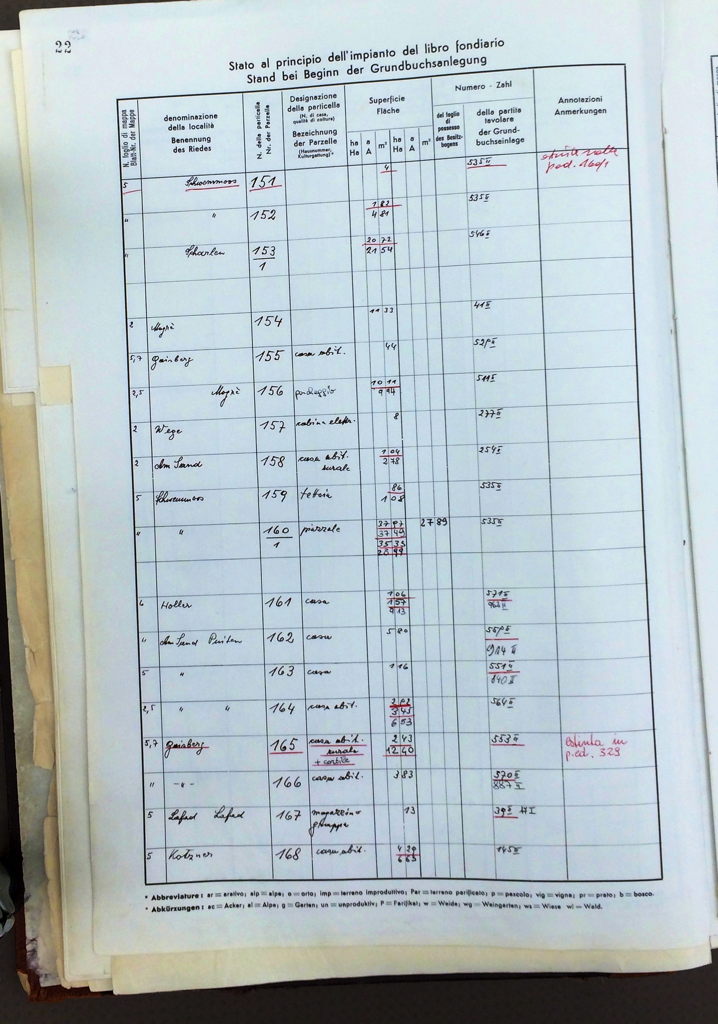 22
Stato al principio dell'impianto del libro fondiario
Stand bei Beginn der Grundbuchsanlegung
N. foglio di mappa
Blatt-Nr. der Mappe
denominazione
della località
Benennung
des Riedes
N. della particella
Nr. der Parzelle
Designazione
della particella
(N. di casa,
qualità di coltura)
Bezeichnung
der Parzelle
(Hausnummer,
Kulturgattung)*
Superficie
Fläche
ha a m² ha a m²
Ha A Ha A
Numero - Zahl
del foglio
di
possesso
des Besitz-
bogens
della partita
tavolare
der Grund-
buchseinlage
Annotazioni
Anmerkungen
5 151 4 535 II estinta nella
p.ed. 160/1
" " 152 1 82 535 II
4 81
" 153 20 72 546 II
1 21 54
2 Magrè 154 11 33 41 II
5,7 Gaisberg 155 casa abit. 44
2,5 Magrè 156 10 11 511 II
9 94
2 Wege 157 cabina elettr. 8 277 II
2 Am Sand 158 casa abit. 1 04 254 II
rurale 2 78
5 159 tettoia 86 535 II
1 08
" " 160 piazzale 37 97 27 89 535 II
1 37 49
35 35
Holler 161 casa 1 06 571 II
1 57
9 13
" Am Sand 162 casa 5 80
914 II
5 " 163 casa 1 16 551 II
640 II
2,5 " " 164 casa abit. 564 II
3 45
6 53
5,7 Gaisberg 165 casa abit. 2 43 553 II estinta in
rurale 12 40 p.ed. 329
+ cortile
" -"- 166 casa abit. 3 83 570 II
887 II
5 Lafad Lafad 167 magazzino 13 39 II
gruppe
5 Kotzner 168 casa abit. 4 29 145 II
6 65
* Abbreviature: ar = arativo; alp = alpe; o = orto; imp = terreno improduttivo; Par = terreno parificato; p = pascolo; vig = vigna; pr = prato; b = bosco.
* Abkürzungen: ac = Acker; al = Alpe; g = Garten; un = unproduktiv; P = Parifikat; w = Weide; wg = Weingarten; ws = Wiese wl = Wald.